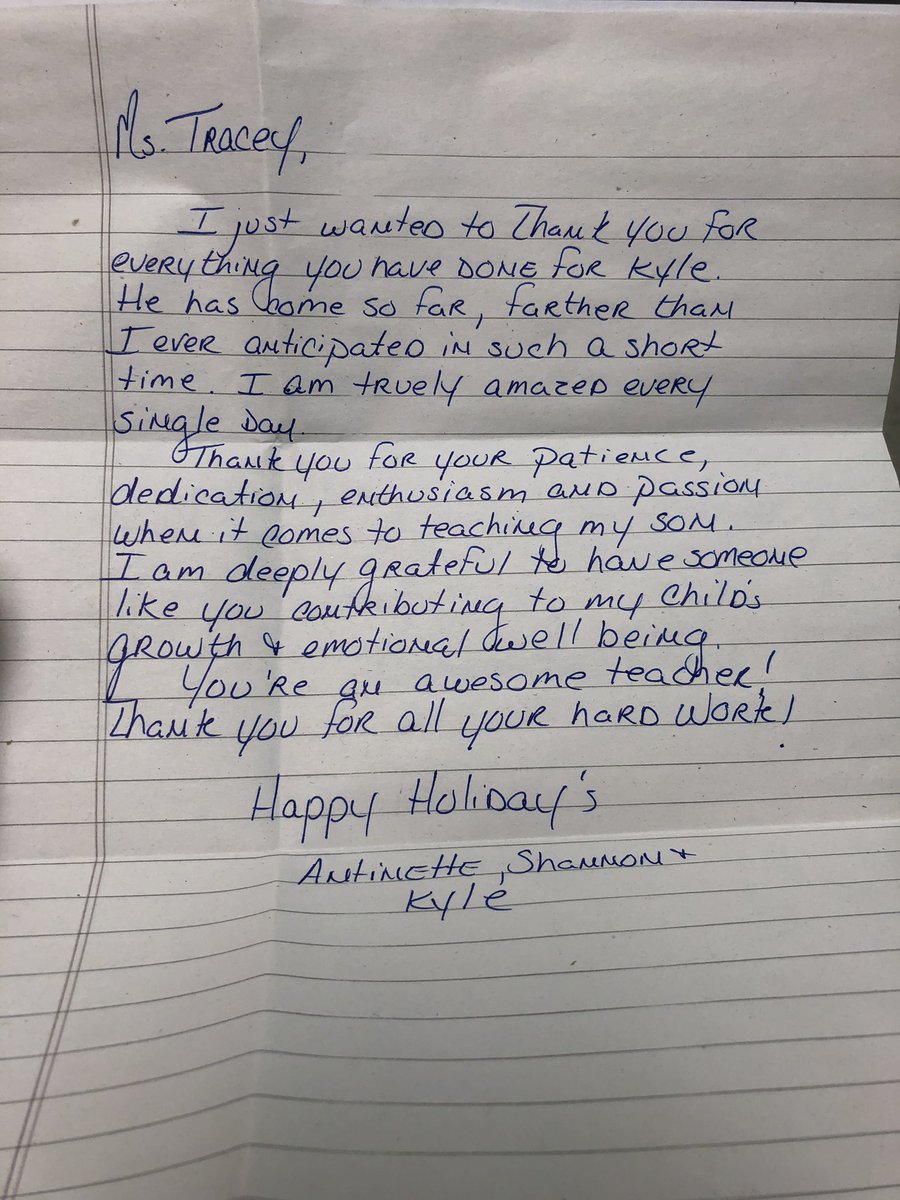 Ms. Tracey,
I just wanted to Thank you for
everything you have done for Kyle.
He has come so far, farther than
I ever anticipated in such a short
time. I am truely amazed every
single Day.
Thank you for your patience,
dedication, enthusiasm and passion
when it comes to teaching my son.
I am deeply grateful to have someone
like you contributing to my child's
growth & emotional well being.
You're an awesome teacher!
Thank you for all your hard work!
Happy Holiday's
Antinette, Shannon +
Kyle